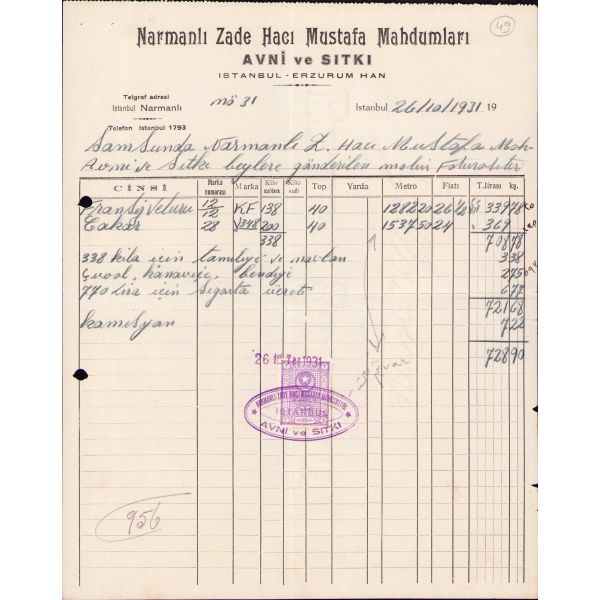 49
Narmanlı Zade Hacı Mustafa Mahdumları
AVNİ ve SITKI
ISTANBUL - ERZURUM HAN
Telgraf adresi
Istanbul Narmanlı
Telefon Istanbul 1793
No 31
Istanbul 26/10/1931 19
Samsunda Narmanlı Z. Hacı Mustafa Mah-
Avni ve Sıtkı beylere gönderilen malın Faturasıdır
CİNSİ Marka numarası Marka Kilo Kilo safi Top Yarda Metro Fiatı T.lirası kş.
12/12 KF 138 40 1282 20 26 1/2 339 78
Çakar 28 348 200 40 1537 50 24 369
338 708 78
338 kilo için 3 38
Çuval, kanaviçe, 2 75
770 lira için sigorta ücreti 6 77
721 68
komisyon 7 22
728 90
26 1931
NARMANLI ZADE HACI MUSTAFA MAHDUMLARI
ISTANBUL
AVNİ ve SITKI
956